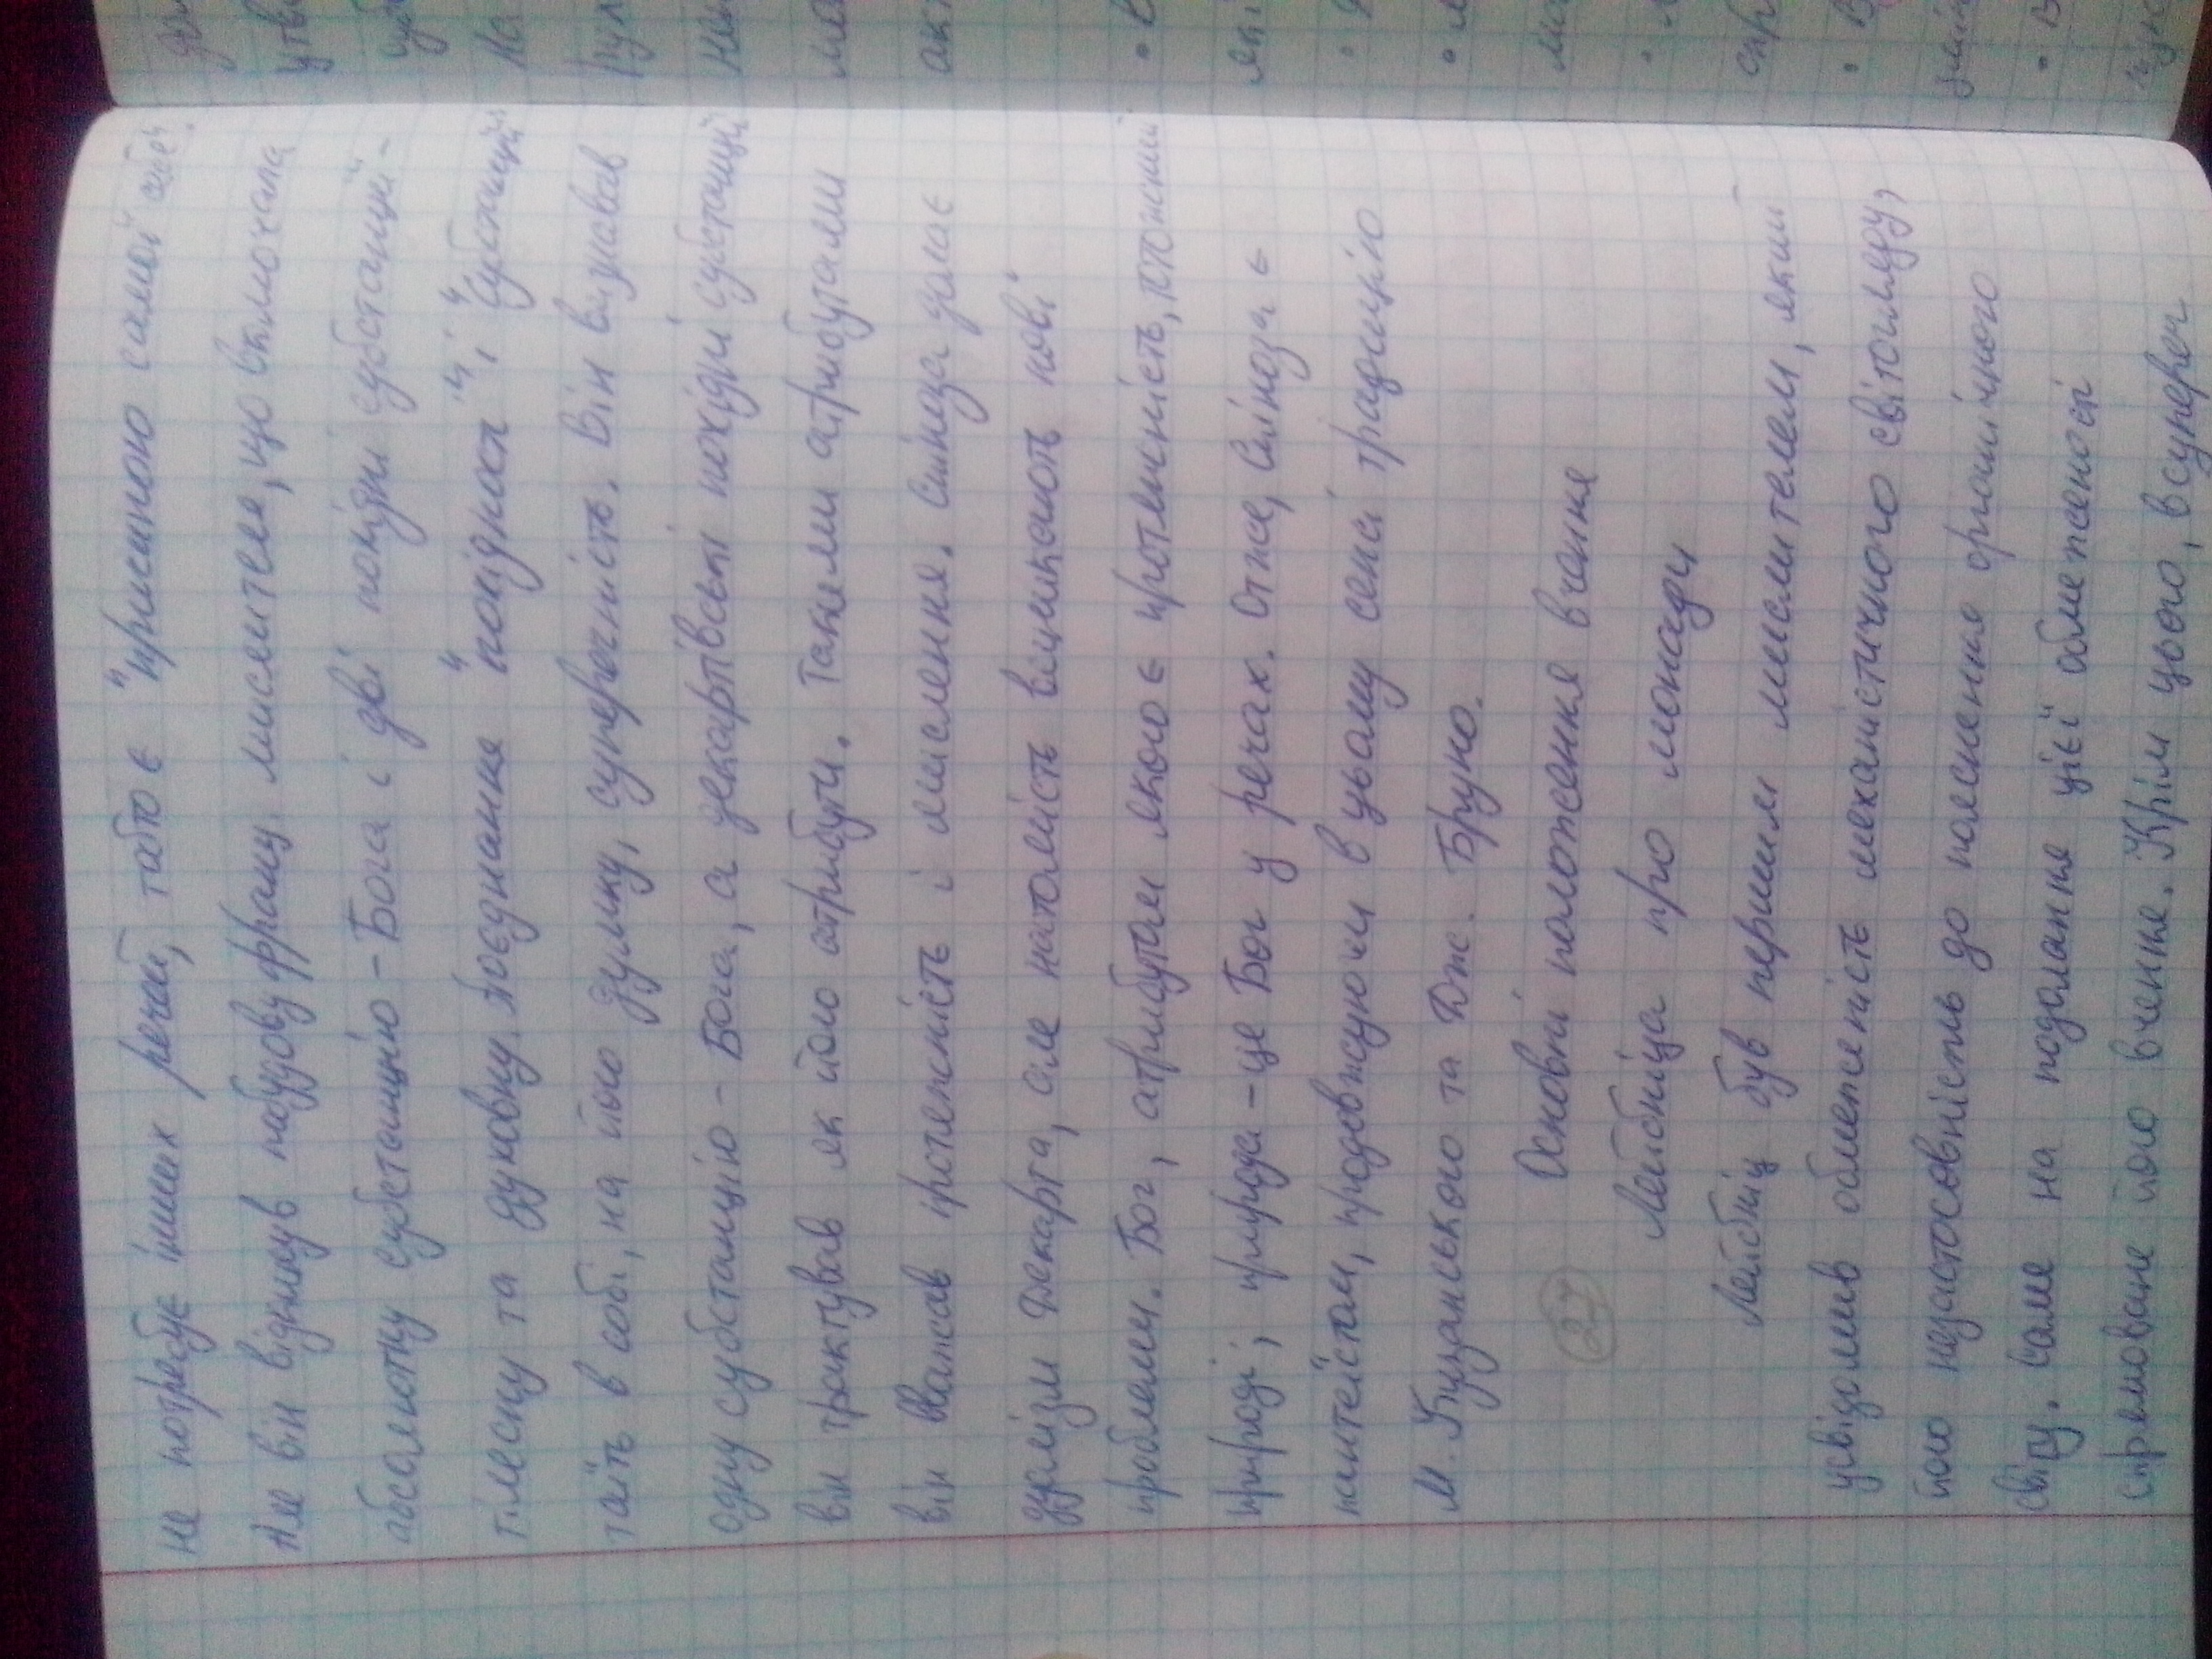 не потребує інших речей, тобто є "причиною самої себе".
Але він відкинув побудову франц. мислителя, що включала
абсолютну субстанцію - Бога і дві похідні субстанції -
тілесну та духовну. Поєднання "похідності" і "субстанції"
таїть в собі, на його думку, суперечність. Він визнавав
одну субстанцію - Бога, а декартівські похідні субстанції
він трактував як його атрибути. Такими атрибутами
він вважав протяжність і мислення. Спіноза долає
дуалізм Декарта, але натомість виникають нові
проблеми. Бог, атрибутом якого є протяжність, тотожний
природі; природа - це Бог у речах. Отже, Спіноза є
пантеїстом, продовжуючи в цьому сенсі традицію
М. Кузанського та Дж. Бруно.
27 Основні положення вчення
Лейбніца про монади
Лейбніц був першим мислителем, який
усвідомив обмеженість механістичного світогляду,
його незастосовність до пояснення органічного
світу. Саме на подолання цієї обмеженості
спрямоване його вчення. Крім цього, всупереч